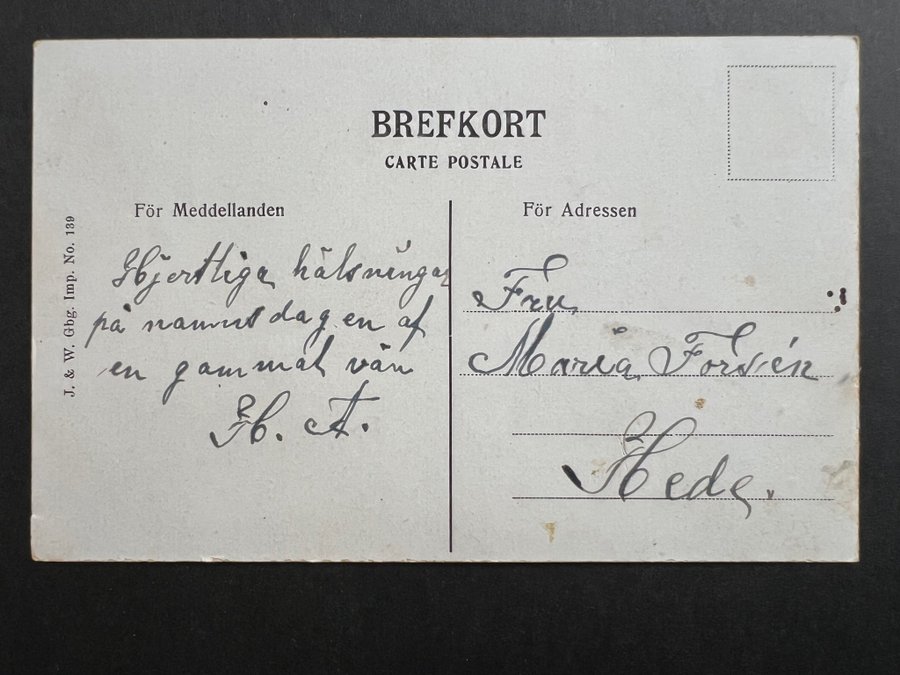 BREFKORT
CARTE POSTALE
För Meddellanden
Hjertliga hälsningar
på namnsdagen af
en gammal vän
H. A.
För Adressen
Fru
Maria Forsén
Hede.
J. & W. Gbg. Imp. No. 139